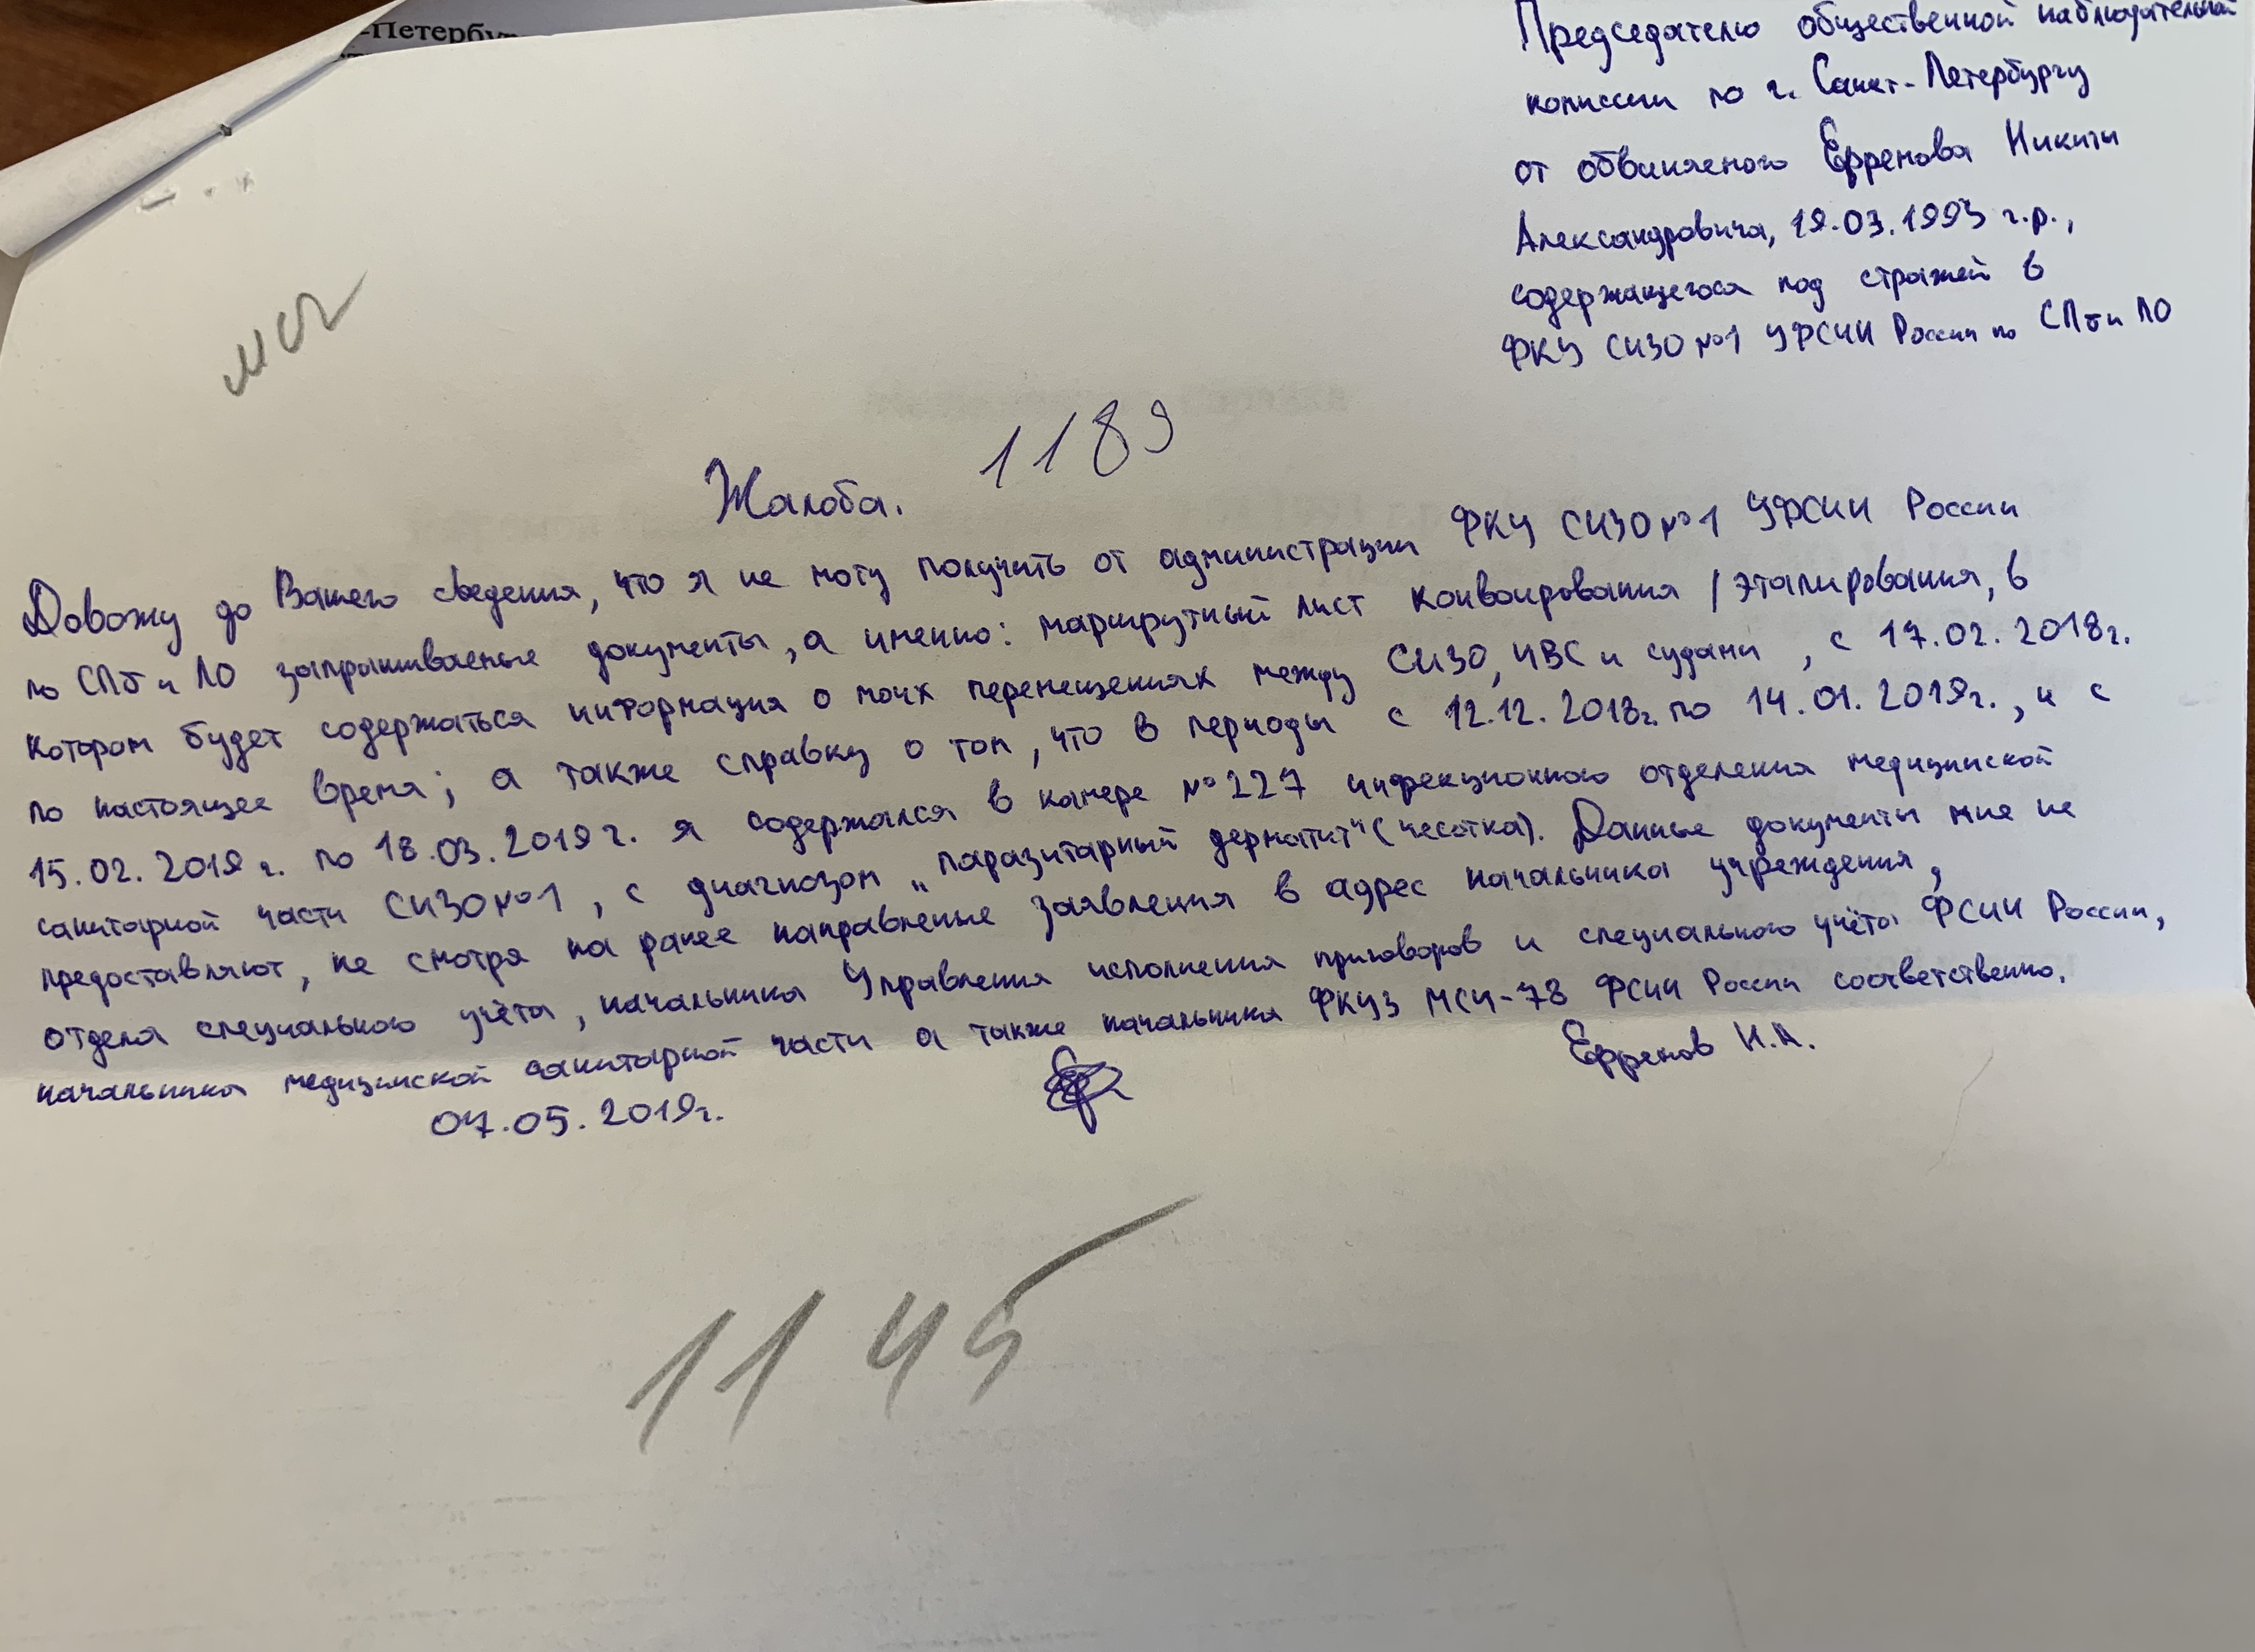 -Петербу
Председателю общественной наблюдательной
комиссии по г. Санкт-Петербургу
от обвиняемого Ефремова Никиты
Александровича, 19.03.1993 г.р.,
содержащегося под стражей в
ФКУ СИЗО №1 УФСИН России по СПб и ЛО
1189
Жалоба.
Довожу до Вашего сведения, что я не могу получить от администрации ФКУ СИЗО №1 УФСИН России
по СПб и ЛО запрашиваемые документы, а именно: маршрутный лист конвоирования / этапирования, в
котором будет содержаться информация о моих перемещениях между СИЗО, ИВС и судами, с 17.02.2018г.
по настоящее время; а также справку о том, что в периоды с 12.12.2018г. по 14.01.2019г., и с
15.02.2019г. по 18.03.2019г. я содержался в камере №227 инфекционного отделения медицинской
санитарной части СИЗО №1, с диагнозом „паразитарный дерматит" (чесотка). Данные документы мне не
предоставляют, не смотря на ранее направленные заявления в адрес начальника учреждения,
отдела специального учёта, начальника Управления исполнения приговоров и специального учёта ФСИН России,
начальника медицинской санитарной части а также начальника ФКУЗ МСЧ-78 ФСИН России соответственно.
07.05.2019г. Ефремов Н.А.
1145